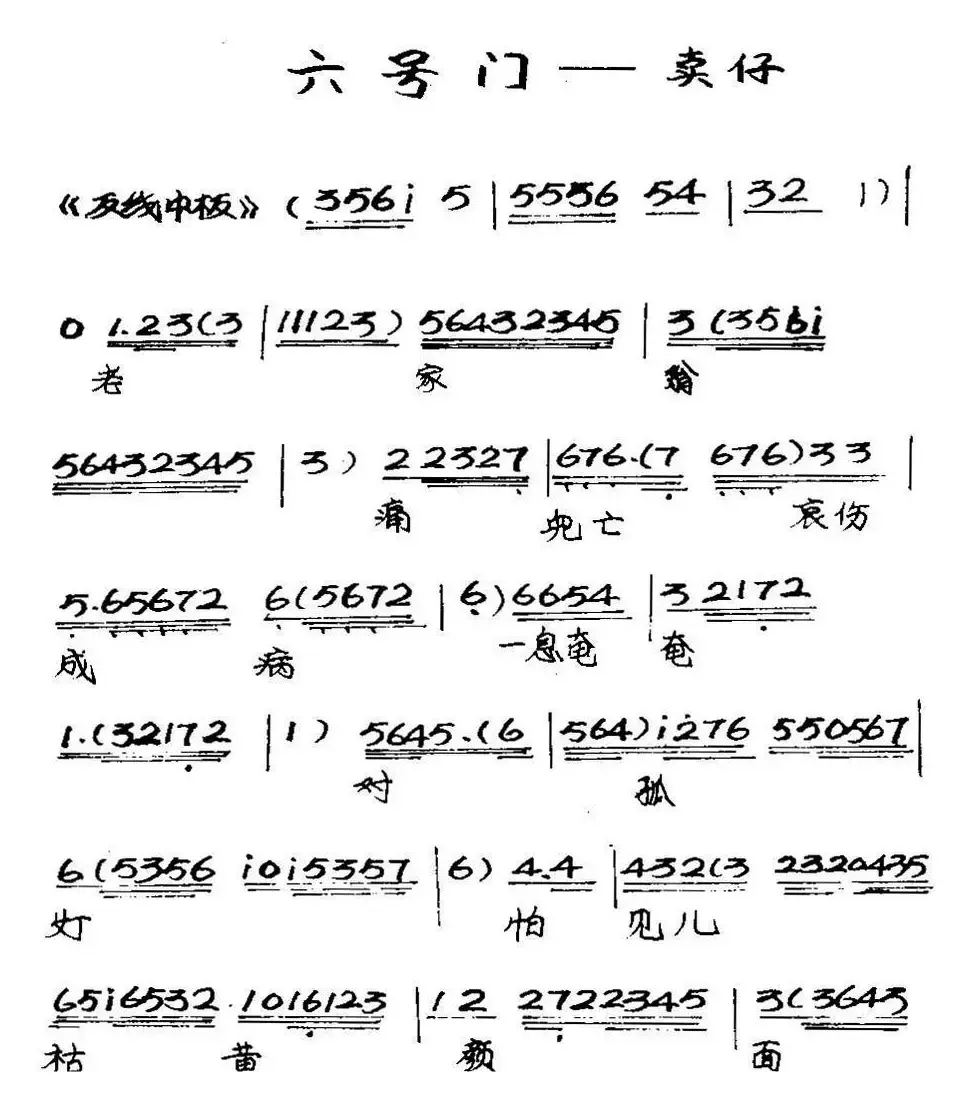 六号门——卖仔
《反线中板》(356i 5 | 5556 54 | 32 1)|
0 1.23(3 | 11123) 56432345 | 3(356i
老 家 翁
56432345 | 3) 22327 | 676.(7 676)33 |
痛 儿亡 哀伤
5.65672 6(5672 | 6)6654 | 32172
成 病 一息奄 奄
1.(32172 | 1) 5645.(6 | 564)i276 550567 |
对 孤
6(5356 i0i5357 | 6) 4.4 | 432(3 2320435
灯 怕 见儿
65i6532.1016123 | 12 2722345 | 3(3643
枯 黄 颜 面